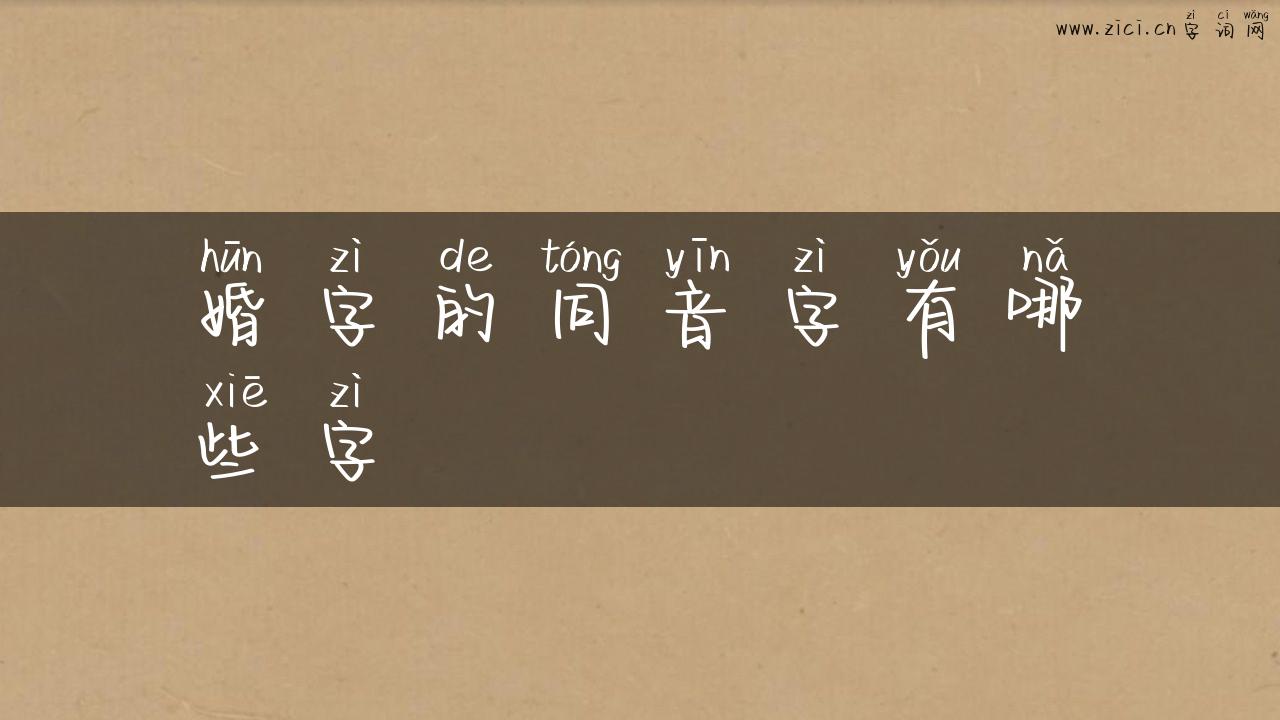 zì cí wǎng
www.zici.cn 字 词 网
hūn zì de tóng yīn zì yǒu nǎ
婚 字 的 同 音 字 有 哪
xiē zì
些 字